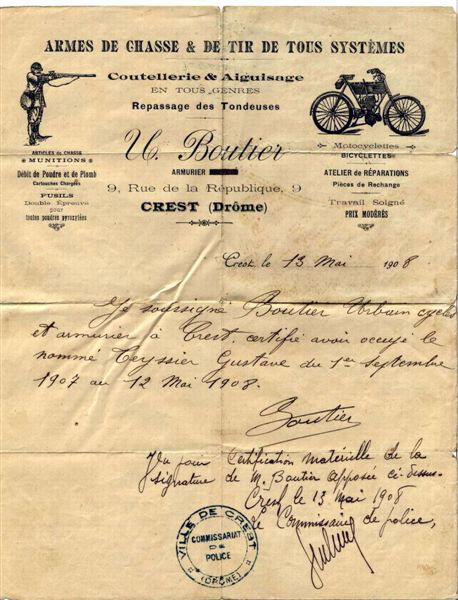 ARMES DE CHASSE & DE TIR DE TOUS SYSTÈMES
Coutellerie & Aiguisage
EN TOUS GENRES
Repassage des Tondeuses
U. Boutier
ARMURIER
9, Rue de la République, 9
CREST (Drôme)
ARTICLES DE CHASSE
MUNITIONS
Débit de Poudre et de Plomb
Cartouches Chargées
FUSILS
Double Épreuve
pour
toutes poudres pyroxylées
Motocyclettes
BICYCLETTES
ATELIER de RÉPARATIONS
Pièces de Rechange
Travail Soigné
PRIX MODÉRÉS
Crest, le 13 Mai 1908
Je soussigné Boutier Urbain cycles
et armurier à Crest, certifie avoir occupé le
nommé Teyssier Gustave du 1er Septembre
1907 au 12 Mai 1908.
Boutier
Vu pour Certification matérielle de la
signature de M. Boutier apposée ci-dessus
Crest le 13 mai 1908
Le Commissaire de police,
VILLE DE CREST
COMMISSARIAT
DE
POLICE
(DROME)